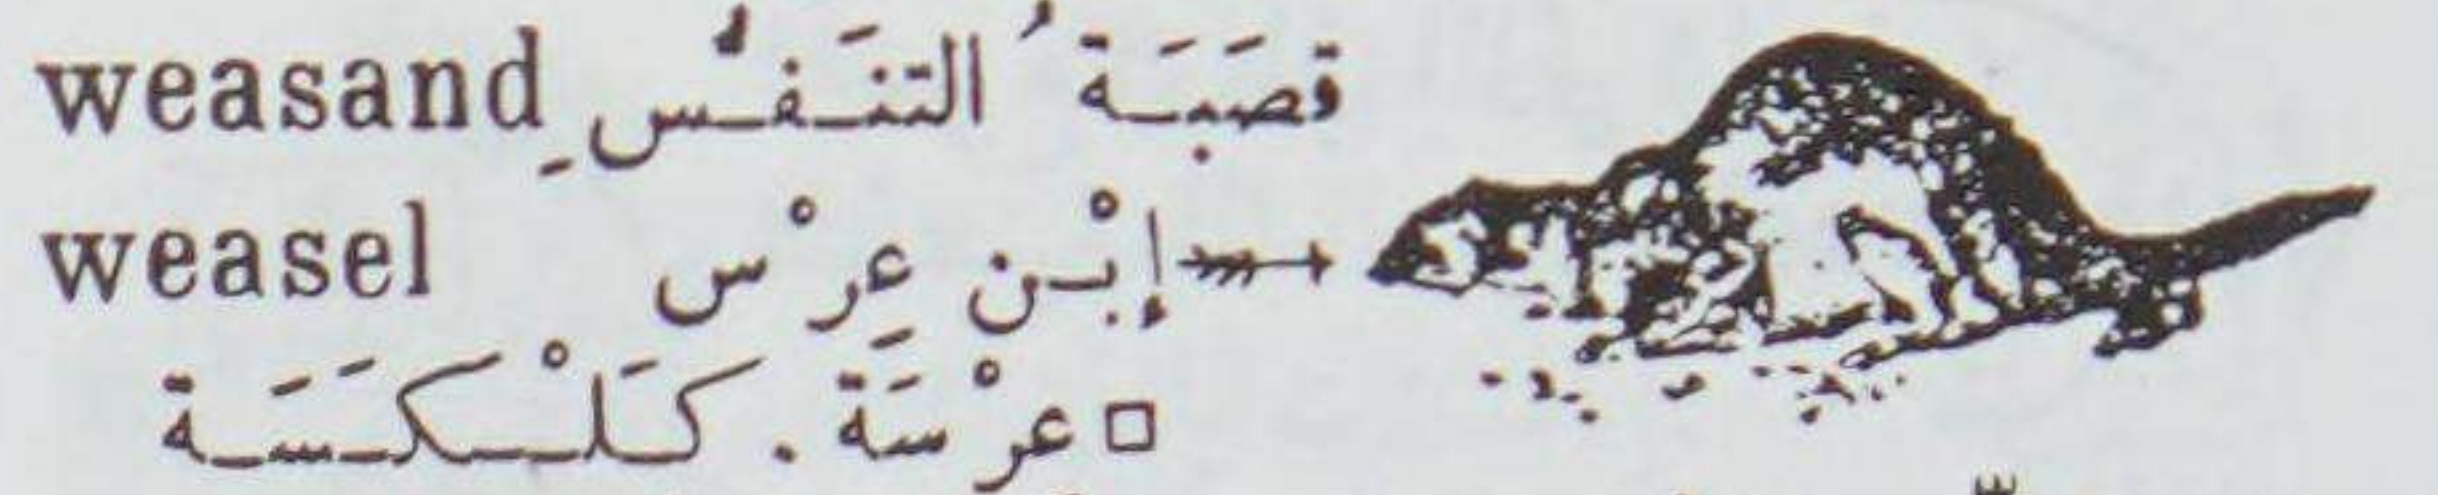 weasand قصَبَة ُ التنَفُّسِ
weasel إبْن عِرْس
□ عرْسَة . كَلْكَسَة